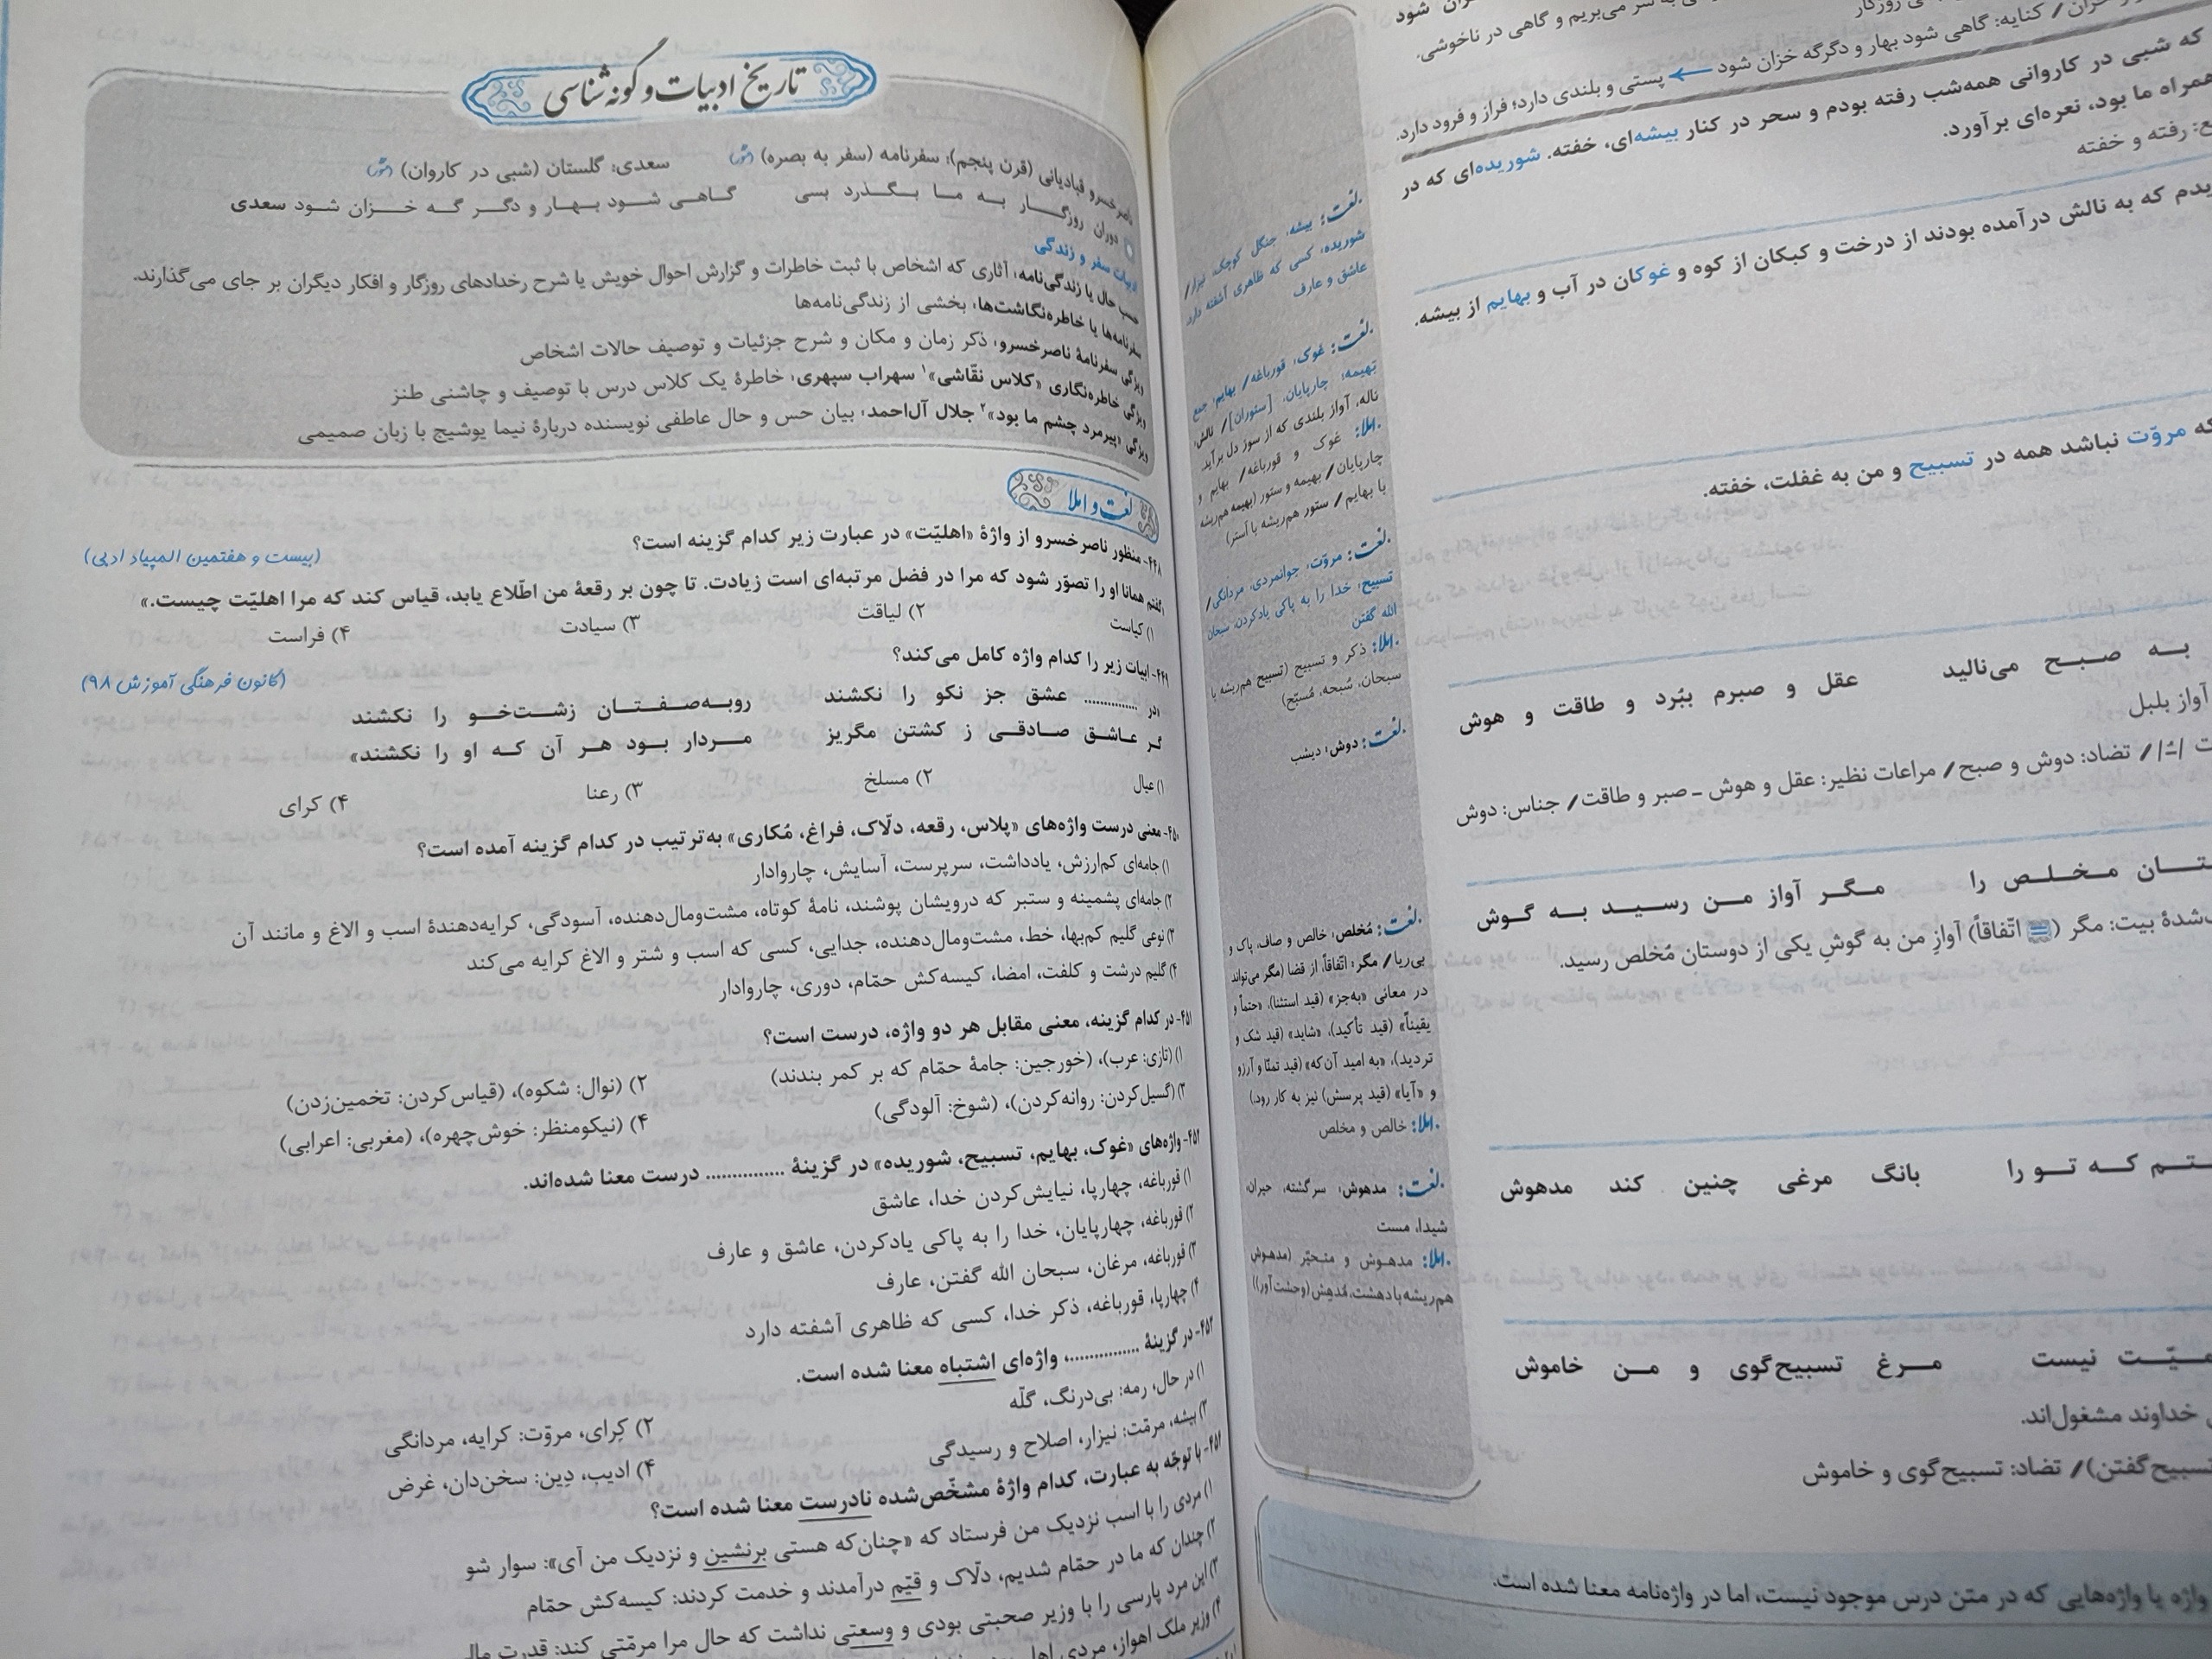 خزان شود
به سر می‌بریم و گاهی در ناخوشی.
کنایه: گاهی شود بهار و دگرگه خزان شود ← پستی و بلندی دارد؛ فراز و فرود دارد.
که شبی در کاروانی همه‌شب رفته بودم و سحر در کنار بیشه‌ای، خفته. شوریده‌ای که در
همراه ما بود، نعره‌ای برآورد.
رفته و خفته
لغت: بیشه: جنگل کوچک، نیزار/
شوریده: کسی که ظاهری آشفته دارد،
عاشق و عارف
که به نالش درآمده بودند از درخت و کبکان از کوه و غوکان در آب و بهایم از بیشه.
لغت: غوک: قورباغه/ بهایم: جمع
بهیمه؛ چارپایان، [ستوران]/ نالش:
ناله، آواز بلندی که از سوز دل برآید
املا: غوک و قورباغه/ بهایم و
چارپایان/ بهیمه و ستور (بهیمه هم‌ریشه
با بهایم/ ستور هم‌ریشه با أستر)
که مروّت نباشد همه در تسبیح و من به غفلت، خفته.
لغت: مروّت: جوانمردی، مردانگی/
تسبیح: خدا را به پاکی یادکردن، سبحان
الله گفتن
املا: ذکر و تسبیح (تسبیح هم‌ریشه با
سبحان، سُبحه، مُسبّح)
به صبح می‌نالید عقل و صبرم ببُرد و طاقت و هوش
آواز بلبل
تضاد: دوش و صبح/ مراعات نظیر: عقل و هوش ـ صبر و طاقت/ جناس: دوش
لغت: دوش: دیشب
مخلص را مگر آواز من رسید به گوش
بیت: مگر (اتّفاقاً) آوازِ من به گوشِ یکی از دوستان مُخلص رسید.
لغت: مُخلص: خالص و صاف، پاک و
بی‌ریا/ مگر: اتّفاقاً، از قضا (مگر می‌تواند
در معانی «به‌جز» (قید استثنا)، «حتماً و
یقیناً» (قید تأکید)، «شاید» (قید شک و
تردید)، «به امید آن‌که» (قید تمنّا و آرزو
و «آیا» (قید پرسش) نیز به کار رود.)
املا: خالص و مخلص
که تو را بانگ مرغی چنین کند مدهوش
لغت: مدهوش: سرگشته، حیران،
شیدا، مست
املا: مدهوش و متحیّر (مدهوش
هم‌ریشه با دهشت، مُدهِش (وحشت‌آور))
نیست مرغ تسبیح‌گوی و من خاموش
خداوند مشغول‌اند.
تضاد: تسبیح‌گوی و خاموش
واژه یا واژه‌هایی که در متن درس موجود نیست، اما در واژه‌نامه معنا شده است.
تاریخ ادبیات و گونه‌شناسی
ناصرخسرو قبادیانی (قرن پنجم): سفرنامه (سفر به بصره) (نثر) سعدی: گلستان (شبی در کاروان) (نثر)
دوران روزگار به ما بگذرد بسی گاهی شود بهار و دگر گه خزان شود سعدی
ادبیات سفر و زندگی
حسب حال یا زندگی‌نامه: آثاری که اشخاص با ثبت خاطرات و گزارش احوال خویش یا شرح رخدادهای روزگار و افکار دیگران بر جای می‌گذارند.
سفرنامه‌ها یا خاطره‌نگاشت‌ها: بخشی از زندگی‌نامه‌ها
ویژگی سفرنامهٔ ناصرخسرو: ذکر زمان و مکان و شرح جزئیات و توصیف حالات اشخاص
ویژگی خاطره‌نگاری «کلاس نقّاشی»۱ سهراب سپهری: خاطرهٔ یک کلاس درس با توصیف و چاشنی طنز
ویژگی «پیرمرد چشم ما بود»۲ جلال آل‌احمد: بیان حس و حال عاطفی نویسنده دربارهٔ نیما یوشیج با زبان صمیمی
لغت و املا
۴۴۸- منظور ناصرخسرو از واژهٔ «اهلیّت» در عبارت زیر کدام گزینه است؟ (بیست و هفتمین المپیاد ادبی)
«گفتم همانا او را تصوّر شود که مرا در فضل مرتبه‌ای است زیادت. تا چون بر رقعهٔ من اطّلاع یابد، قیاس کند که مرا اهلیّت چیست.»
۱) کیاست ۲) لیاقت ۳) سیادت ۴) فراست
۴۴۹- ابیات زیر را کدام واژه کامل می‌کند؟ (کانون فرهنگی آموزش ۹۸)
«در .............. عشق جز نکو را نکشند روبه‌صفتان زشت‌خو را نکشند
گر عاشق صادقی ز کشتن مگریز مردار بود هر آن که او را نکشند»
۱) عیال ۲) مسلخ ۳) رعنا ۴) کرای
۴۵۰- معنی درست واژه‌های «پلاس، رقعه، دلّاک، فراغ، مُکاری» به‌ترتیب در کدام گزینه آمده است؟
۱) جامه‌ای کم‌ارزش، یادداشت، سرپرست، آسایش، چاروادار
۲) جامه‌ای پشمینه و ستبر که درویشان پوشند، نامهٔ کوتاه، مشت‌ومال‌دهنده، آسودگی، کرایه‌دهندهٔ اسب و الاغ و مانند آن
۳) نوعی گلیم کم‌بها، خط، مشت‌ومال‌دهنده، جدایی، کسی که اسب و شتر و الاغ کرایه می‌کند
۴) گلیم درشت و کلفت، امضا، کیسه‌کش حمّام، دوری، چاروادار
۴۵۱- در کدام گزینه، معنی مقابل هر دو واژه، درست است؟
۱) (تازی: عرب)، (خورجین: جامهٔ حمّام که بر کمر بندند) ۲) (نوال: شکوه)، (قیاس‌کردن: تخمین‌زدن)
۳) (گسیل‌کردن: روانه‌کردن)، (شوخ: آلودگی) ۴) (نیکومنظر: خوش‌چهره)، (مغربی: اعرابی)
۴۵۲- واژه‌های «غوک، بهایم، تسبیح، شوریده» در گزینهٔ .............. درست معنا شده‌اند.
۱) قورباغه، چهارپا، نیایش‌کردن خدا، عاشق
۲) قورباغه، چهارپایان، خدا را به پاکی یادکردن، عاشق و عارف
۳) قورباغه، مرغان، سبحان الله گفتن، عارف
۴) چهارپا، قورباغه، ذکر خدا، کسی که ظاهری آشفته دارد
۴۵۳- در گزینهٔ ..............، واژه‌ای اشتباه معنا شده است.
۱) در حال، رمه: بی‌درنگ، گلّه ۲) کِرای، مروّت: کرایه، مردانگی
۳) بیشه، مرمّت: نیزار، اصلاح و رسیدگی ۴) ادیب، دِین: سخن‌دان، غرض
۴۵۴- با توجّه به عبارت، کدام واژهٔ مشخّص‌شده نادرست معنا شده است؟
۱) مردی را با اسب نزدیک من فرستاد که «چنان‌که هستی برنشین و نزدیک من آی»: سوار شو
۲) چندان که ما در حمّام شدیم، دلّاک و قیّم درآمدند و خدمت کردند: کیسه‌کش حمّام
۳) این مرد پارسی را با وزیر صحبتی بودی و وسعتی نداشت که حال مرا مرمّتی کند: قدرت مالی
۴) وزیر ملک اهواز، مردی اهل